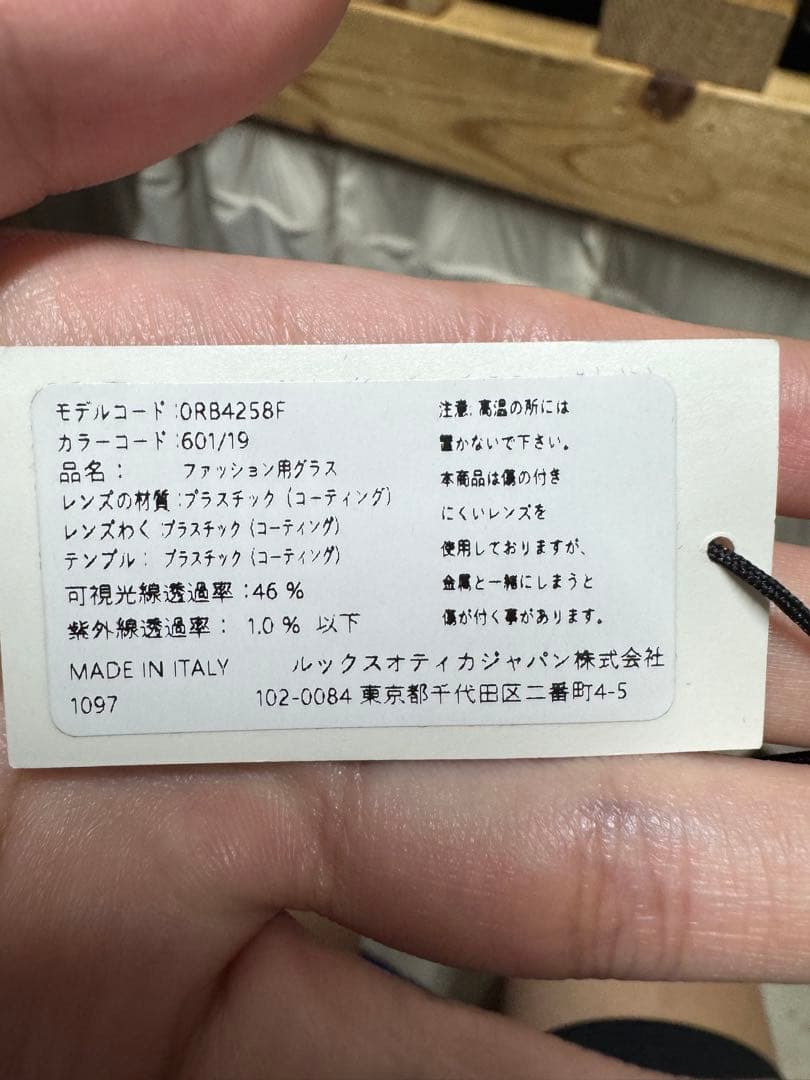 モデルコード:0RB4258F
カラーコード:601/19
品名: ファッション用グラス
レンズの材質:プラスチック(コーティング)
レンズわく プラスチック(コーティング)
テンプル: プラスチック(コーティング)
可視光線透過率:46 %
紫外線透過率: 1.0 % 以下
注意.高温の所には
置かないで下さい。
本商品は傷の付き
にくいレンズを
使用しておりますが、
金属と一緒にしまうと
傷が付く事があります。
MADE IN ITALY ルックスオティカジャパン株式会社
1097 102-0084 東京都千代田区二番町4-5